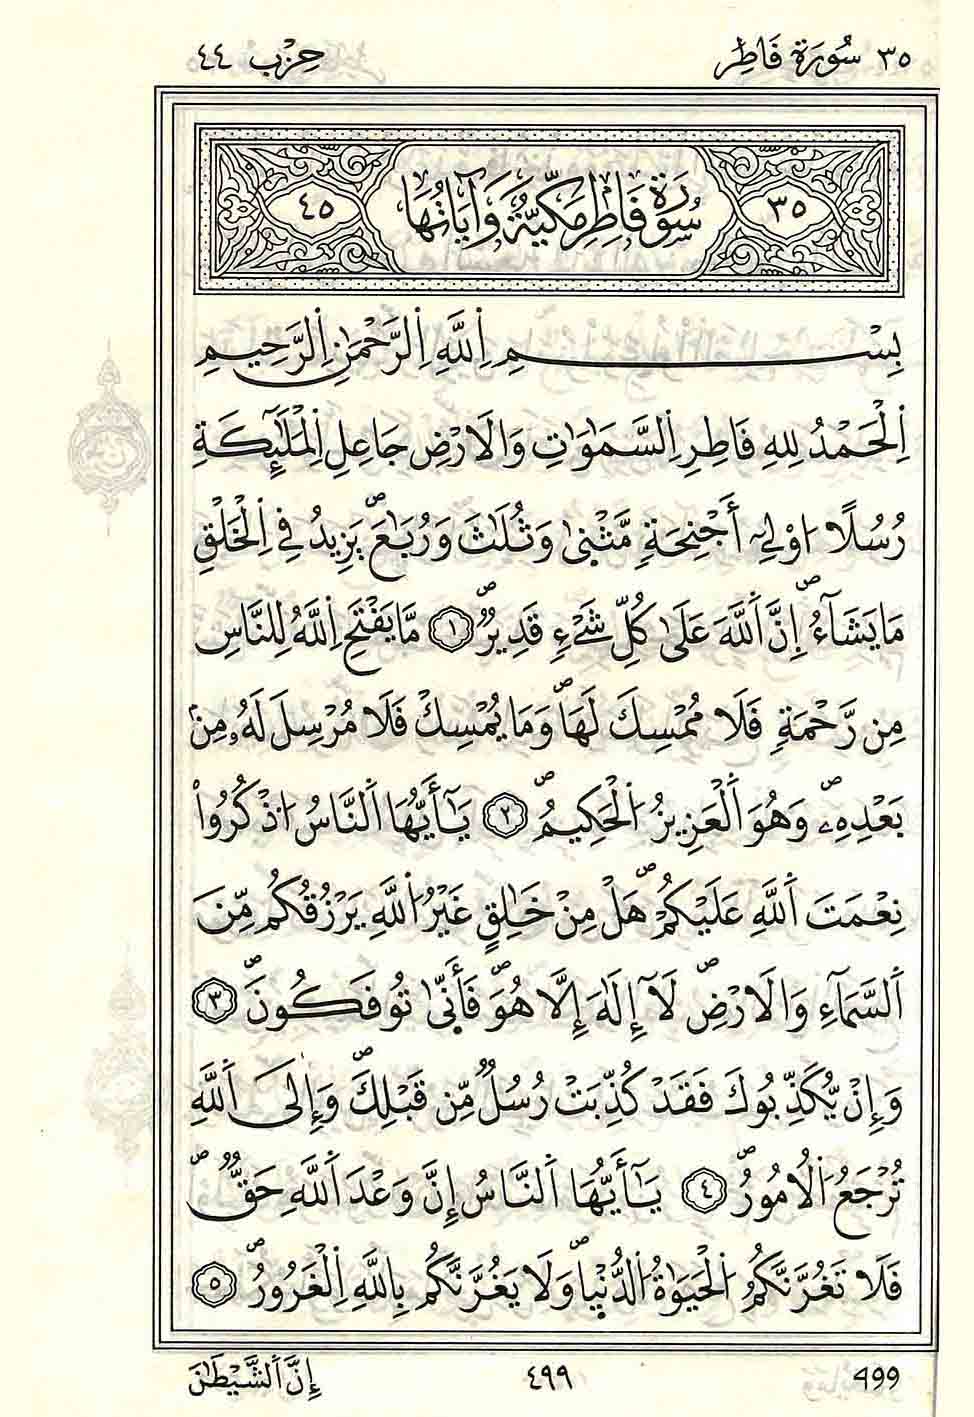 ٣٥ سُورَة فَاطِر
حِزْب ٤٤
٣٥
سُورَةُ فَاطِرٍ مَكِّيَّةٌ وَآيَاتُهَا
٤٥
بِسْمِ اِ۬للَّهِ اِ۬لرَّحْمَٰنِ اِ۬لرَّحِيمِ
اِ۬لْحَمْدُ لِلهِ فَاطِرِ اِ۬لسَّمَٰوَٰتِ وَالَارْضِ جَاعِلِ اِ۬لْمَلَٰٓئِكَةِ
رُسُلًا ا۟وْلِےٓ أَجْنِحَةٖ مَّثْن۪يٰ وَثُلَٰثَ وَرُبَٰعَۖ يَزِيدُ فِے اِ۬لْخَلْقِ
مَا يَشَآءُۖ اِنَّ اَ۬للَّهَ عَلَىٰ كُلِّ شَےْءٖ قَدِيرٞۖ ١ مَّا يَفْتَحِ اِ۬للَّهُ لِلنَّاسِ
مِن رَّحْمَةٖ فَلَا مُمْسِكَ لَهَاۖ وَمَا يُمْسِكْ فَلَا مُرْسِلَ لَهُۥ مِنۢ
بَعْدِهِۦۖ وَهُوَ اَ۬لْعَزِيزُ اُ۬لْحَكِيمُۖ ٢ يَٰٓأَيُّهَا اَ۬لنَّاسُ اُ۟ذْكُرُوا۟
نِعْمَتَ اَ۬للَّهِ عَلَيْكُمْۖ هَلْ مِنْ خَٰلِقٍ غَيْرُ اُ۬للَّهِ يَرْزُقُكُم مِّنَ
اَ۬لسَّمَآءِ وَالَارْضِۖ لَآ إِلَٰهَ إِلَّا هُوَۖ فَأَنّ۪يٰ تُوفَكُونَۖ ٣
وَإِنْ يُّكَذِّبُوكَ فَقَدْ كُذِّبَتْ رُسُلٞ مِّن قَبْلِكَۖ وَإِلَى اَ۬للَّهِ
تُرْجَعُ اُ۬لُامُورُۖ ٤ يَٰٓأَيُّهَا اَ۬لنَّاسُ إِنَّ وَعْدَ اَ۬للَّهِ حَقّٞۖ
فَلَا تَغُرَّنَّكُمُ اُ۬لْحَيَوٰةُ اُ۬لدُّنْي۪اۖ وَلَا يَغُرَّنَّكُم بِاللَّهِ اِ۬لْغَرُورُۖ ٥
499
٤٩٩
إِنَّ اَ۬لشَّيْطَٰنَ